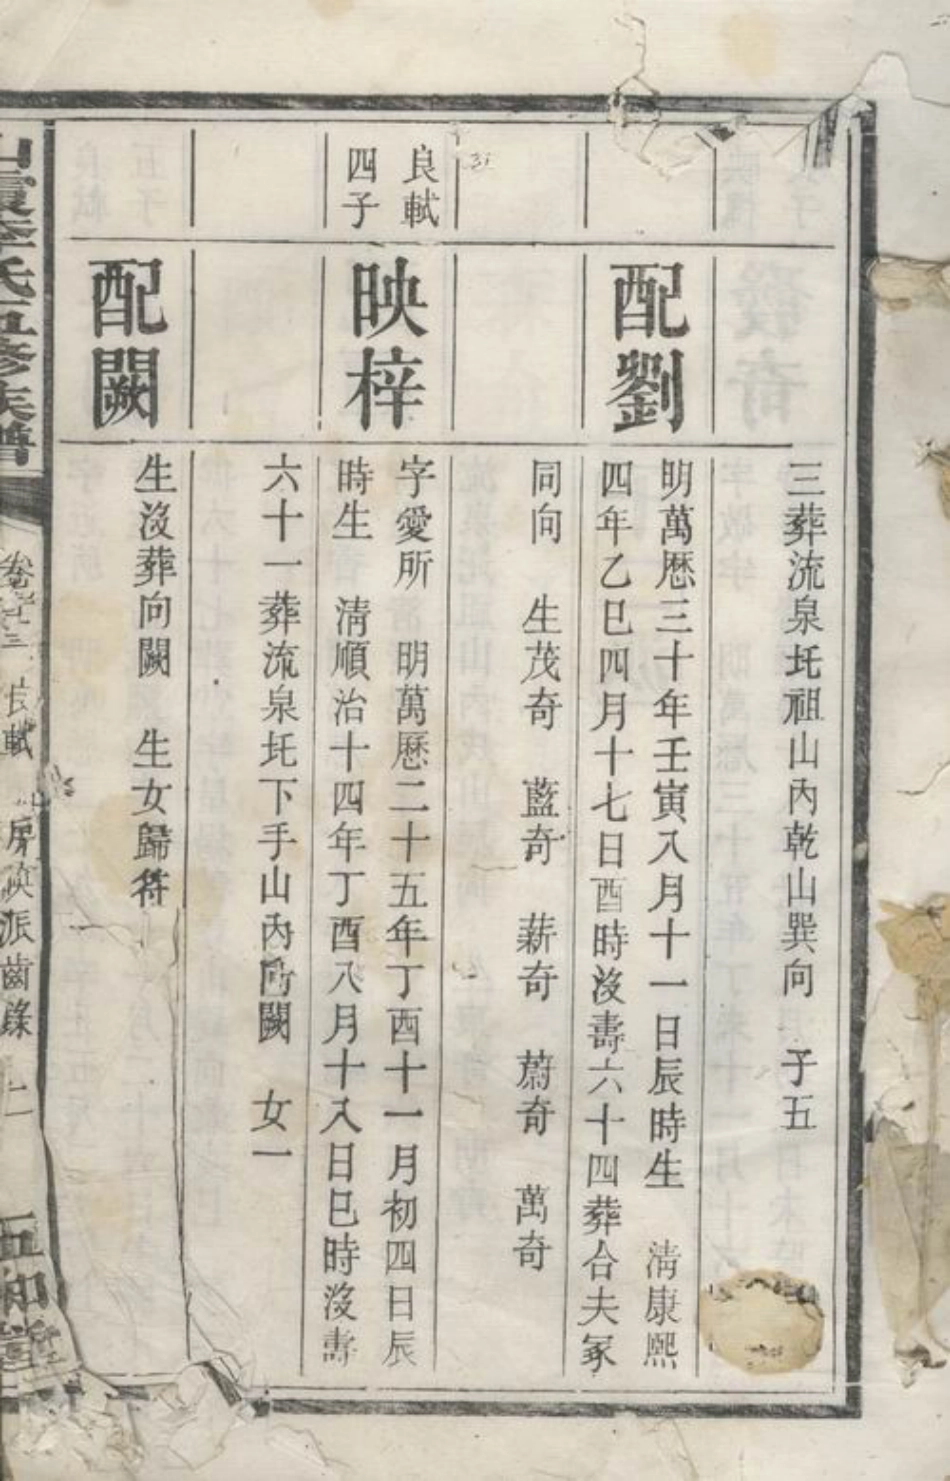 三葬流泉圫祖山內乾山巽向 子五
配劉
明萬歷三十年壬寅八月十一日辰時生 清康熙
四年乙巳四月十七日酉時沒壽六十四葬合夫冢
同向 生茂奇 藍奇 薪奇 蔚奇 萬奇
良軾
四子
映梓
字愛所 明萬歷二十五年丁酉十一月初四日辰
時生 清順治十四年丁酉八月十八日巳時沒壽
六十一葬流泉圫下手山內向闕 女一
配闕
生沒葬向闕 生女歸符
氏五修族譜
房映派齒錄
五和堂